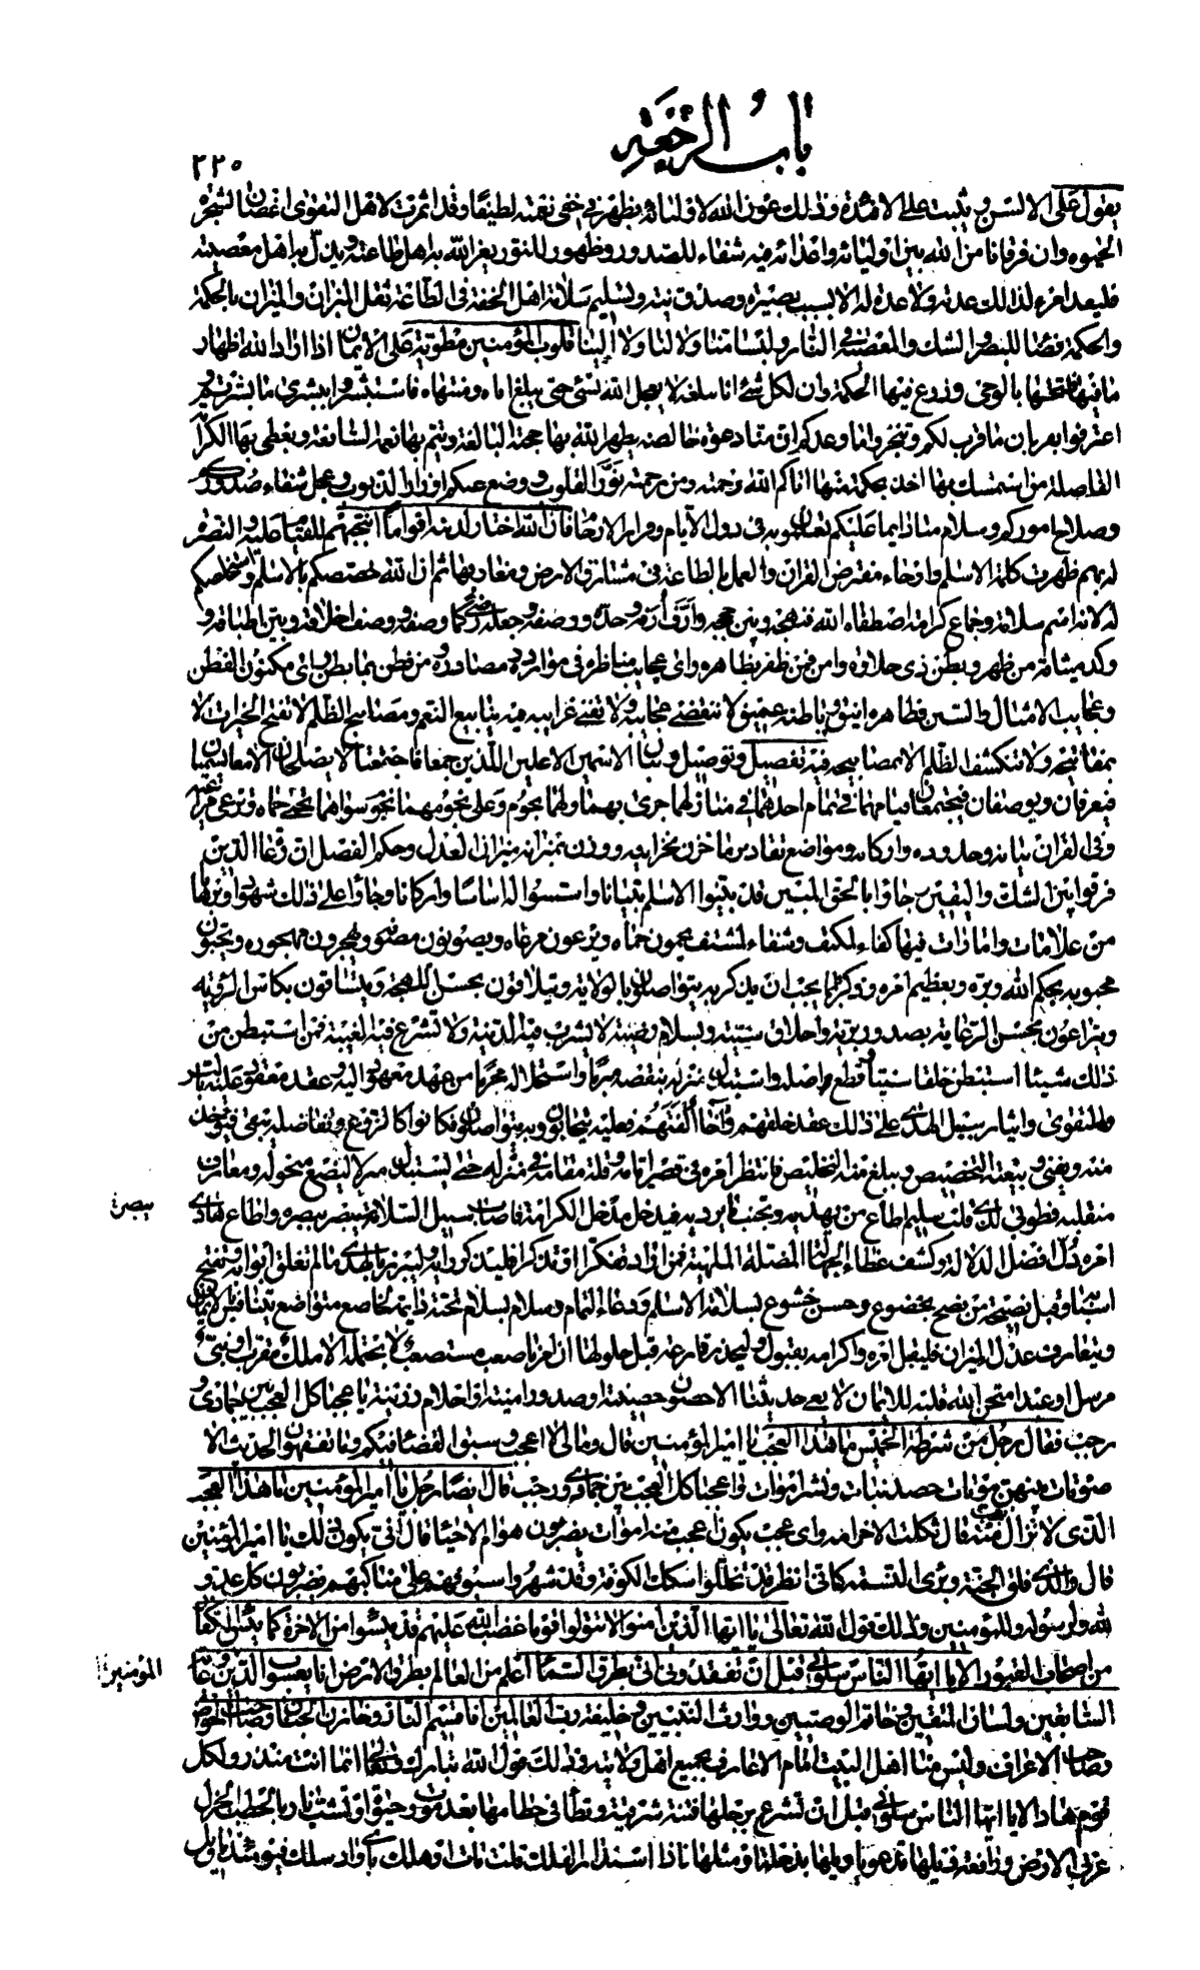 باب الرجعة
٢٢٠
يقول على الالسن ويثبت على الافئدة وذلك عون الله لاوليائه يظهر في خفي نعمته لطيفا وقد اثمرت لاهل التقوى اغصان شجرة
الحيوة وان فرقانا من الله بين اوليائه واعدائه فيه شفاء للصدور وظهور للنور يعز الله به اهل طاعته ويذل به اهل معصيته
فليعد امرء لذلك عدته ولا عدة له الا بسبب بصيرة وصدق نية وتسليم سلامة اهل الخفة في الطاعة ثقل الميزان والميزان بالحكمة
والحكمة فضاء للبصر والشك والمعصية في النار وليسا منا ولا لنا ولا الينا قلوب المؤمنين مطوية على الايمان اذا اراد الله اظهار
ما فيها فتحها بالوحي وزرع فيها الحكمة وان لكل شئ انا يبلغه لا يعجل الله بشئ حتى يبلغ اناه ومنتهاه فاستبشروا ببشرى ما بشرتم
اعترفوا بقربان ما قرب لكم وتنجزوا ما وعدكم ان منا دعوة خالصة يظهر الله بها حجته البالغة ويتم بها نعمه السابغة ويعطي بها الكرامة
الفاضلة من استمسك بها اخذ بحكمة منها اتاكم الله رحمته ومن رحمته نور القلوب ووضع عنكم اوزار الذنوب وعجل شفاء صدوركم
وصلاح اموركم وسلام منا دائما عليكم تعلمون به في دول الايام وقرار الارحام فان الله اختار لدينه اقواما انتجبهم للقيام عليه والنصرة
له بهم ظهرت كلمة الاسلام وارجاء مفترض القران والعمل بالطاعة في مشارق الارض ومغاربها ثم ان الله خصصكم بالاسلام واستخلصكم
له لانه اسم سلامة وجماع كرامة اصطفاه الله فنهجه وبين حججه وارف ارفه وحده ووصفه وجعله رضى كما وصفه ووصف اخلاقه وبين اطباقه و
وكد ميثاقه من ظهر وبطن ذي حلاوة وامن فمن ظفر بظاهره راى عجايب مناظره في موارده ومصادره ومن فطن بما بطن راى مكنون الفطن
وعجايب الامثال والسنن فظاهره انيق وباطنه عميق لا تنقضي عجائبه ولا تفنى غرائبه فيه ينابيع النعم ومصابيح الظلم لا تفتح الخيرات الا
بمفاتيحه ولا تنكشف الظلم الا بمصابيحه فيه تفصيل وتوصيل وبيان الاسمين الاعلين اللذين جمعا فاجتمعا لا يصلحان الا معا يسميان
فيعرفان ويوصفان فيجتمعان قيامهما في تمام احدهما في منازلهما جرى بهما ولهما نجوم وعلى نجومهما نجوم سواهما تحمى حماه وترعى مراعيه
وفي القران بيانه وحدوده واركانه ومواضع تقادير ما خزن بخزائنه ووزن بميزانه ميزان العدل وحكم الفصل ان رعاة الدين
فرقوا بين الشك واليقين وجاؤا بالحق المبين قد بينوا الاسلام تبيانا واسسوا له اساسا واركانا وجاؤا على ذلك شهودا وبرهانا
من علامات وامارات فيها كفاء لمكتف وشفاء لمشتف يحمون حماه ويرعون مرعاه ويصونون مصونه ويهجرون مهجوره ويحبون
محبوبه بحكم الله وبره وبعظيم امره وذكره بما يجب ان يذكر به يتواصلون بالولاية ويتلاقون بحسن اللهجة ويتساقون بكاس الروية
ويتراعون بحسن الرعاية بصدور برية واخلاق سنية وبسلام رضية لا يشرب فيه الدنية ولا تشرع فيه الغيبة فمن استبطن من
ذلك شيئا استبطن خلقا سنيا وقطع اصله واستبدل منزله بنقضه مبرما واستحلاله محرما من عهد معهود اليه وعقد معقود عليه بالبر
والتقوى وايثار سبيل الهدى على ذلك عقد خلقهم واخا الفتهم فعليه يتحابون وبه يتواصلون فكانوا كالزرع وتفاضله يبقى فيؤخذ
منه ويفنى وبيعته التخصيص ويبلغ منه التخليص فانتظر امره في قصر ايامه وقلة مقامه في منزله حتى يستبدل منزلا ليضع منحوله ومعارف
منقلبه فطوبى لذي قلب سليم اطاع من يهديه وتجنب ما يرديه فيدخل مدخل الكرامة فاصاب سبيل السلامة يبصر ببصره واطاع هادي
بصرة
امره دل افضل الدلالة وكشف غطاء الجهالة المضلة الملهية فمن اراد تفكرا او تذكرا فليذكر رايه وليبرز بالهدى ما لم تغلق ابوابه وتفتح
اسبابه وقبل نصيحة من نصح بخضوع وحسن خشوع بسلامة الاسلام ودعاء التمام وسلام بسلام تحية دائمة لخاضع متواضع يتنافس بالايمان
ويتعارف عدل الميزان فليقبل امره واكرامه بقبول وليحذر قارعة قبل حلولها ان امرنا صعب مستصعب لا يحتمله الا ملك مقرب او نبي
مرسل او عبد امتحن الله قلبه للايمان لا يعي حديثنا الا حصون حصينة او صدور امينة او احلام رزينة يا عجبا كل العجب بين جمادى و
رجب فقال رجل من شرطة الخميس ما هذا العجب يا امير المؤمنين قال ومالي لا اعجب وسبق القضاء فيكم وما تفقهون الحديث الا
صوتات بينهن موتات حصد نبات ونشر اموات واعجبا كل العجب بين جمادى ورجب قال ايضا رجل يا امير المؤمنين ما هذا العجب
الذي لا تزال تعجب منه قال ثكلت الاخر امه واي عجب يكون اعجب منه اموات يضربون هوام الاحياء قال انى يكون ذلك يا امير المؤمنين
قال والذي فلق الحبة وبرئ النسمة كاني انظر قد تخللوا سكك الكوفة وقد شهروا سيوفهم على مناكبهم يضربون كل عدو
لله ولرسوله وللمؤمنين وذلك قول الله تعالى يا ايها الذين امنوا لا تتولوا قوما غضب الله عليهم قد يئسوا من الاخرة كما يئس الكفار
من اصحاب القبور الا يا ايها الناس سلوني قبل ان تفقدوني اني بطرق السماء اعلم من العالم بطرق الارض انا يعسوب الدين وغاية
المؤمنين
السابقين ولسان المتقين وخاتم الوصيين ووارث النبيين وخليفة رب العالمين انا قسيم النار وخازن الجنان وصاحب الحوض
وصاحب الاعراف وليس منا اهل البيت امام الا عارف بجميع اهل ولايته وذلك قول الله تبارك وتعالى انما انت منذر ولكل
قوم هاد الا يا ايها الناس سلوني قبل ان تشرع برجلها فتنة شرقية وتطأ في خطامها بعد موت وحيوة او تشب نار بالحطب الجزل
غربي الارض ورافعة ذيلها تدعو يا ويلها بذحلة او مثلها فاذا استدار الفلك قلت مات او هلك باي واد سلك فيومئذ تاويل